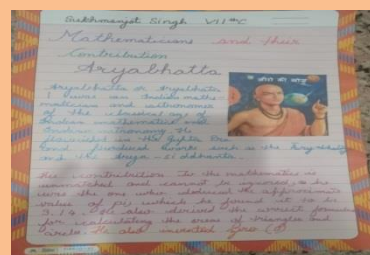 Sukhmanjot Singh VII th C
Mathematicians and their
Contribution
Aryabhatta
Aryabhatta or Aryabhata
I was an Indian mathe-
matician and astronomer
of the classical age of
Indian mathematics and
Indian astronomy. He
flourished in the Gupta Era
and produced works such as the Aryabhatiya
and the Arya-siddhanta.
His contribution to the mathematics is
unmatched and cannot be ignored, as he
was the one who deduced the approximate
value of pi which he found it to be
3.14. He also derived the correct formula
for calculating the areas of triangles and
circle. He also invented Zero (0)